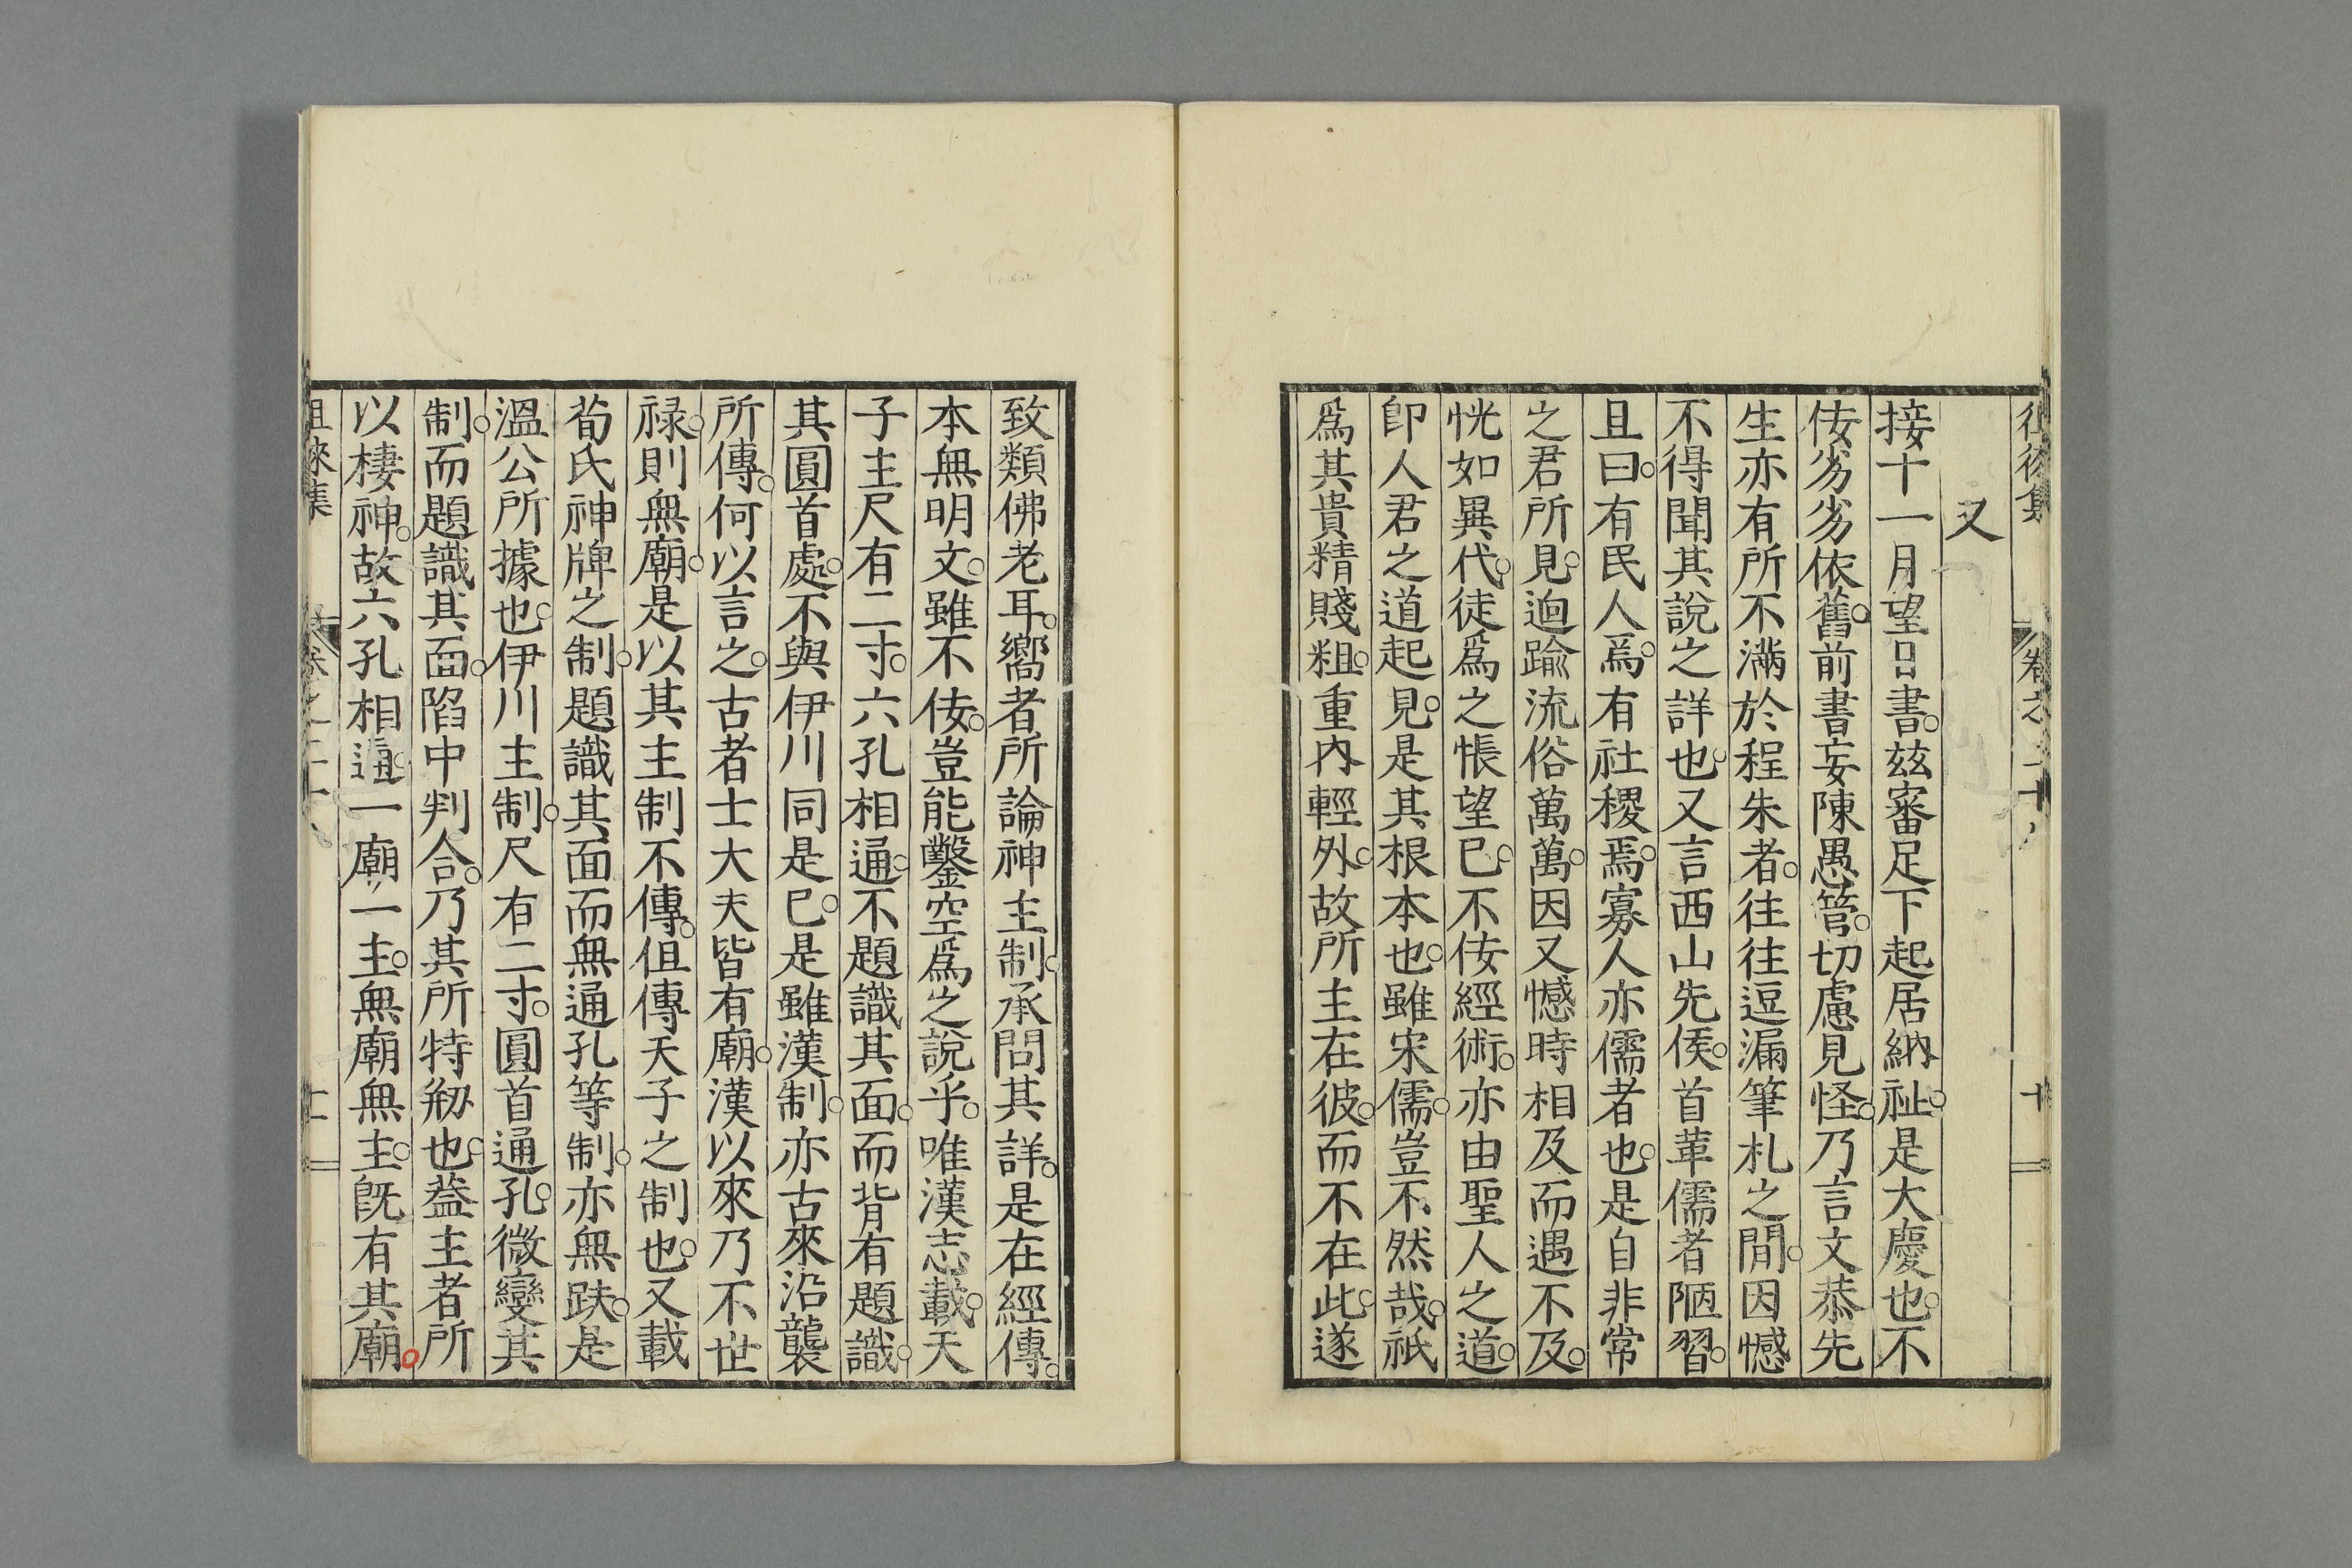 又
接十一月望日書。茲審足下起居納祉。是大慶也。不
佞劣劣依舊。前書妄陳愚管。切慮見怪。乃言文恭先
生亦有所不滿於程朱者。往往逗漏筆札之間。因憾
不得聞其說之詳也。又言西山先侯。首革儒者陋習。
且曰。有民人焉。有社稷焉。寡人亦儒者也。是自非常
之君所見。逈踰流俗萬萬。因又憾時相及而遇不及。
恍如異代。徒爲之悵望已。不佞經術。亦由聖人之道。
卽人君之道起見。是其根本也。雖宋儒。豈不然哉。祇
爲其貴精賤粗。重內輕外。故所主在彼。而不在此。遂
致類佛老耳。嚮者所論神主制。承問其詳。是在經傳。
本無明文。雖不佞。豈能鑿空爲之說乎。唯漢志載。天
子主尺有二寸。六孔相通。不題識其面。而背有題識。
其圓首處。不與伊川同是已。是雖漢制。亦古來沿襲
所傳。何以言之。古者士大夫皆有廟。漢以來乃不世
祿。則無廟。是以其主制不傳。但傳天子之制也。又載
荀氏神牌之制。題識其面而無通孔等制。亦無趺。是
溫公所據也。伊川主制。尺有二寸。圓首通孔。微變其
制。而題識其面。陷中判合。乃其所特剏也。葢主者所
以棲神。故六孔相通。一廟一主。無廟無主。旣有其廟。
徂來集 卷之二十八 十一